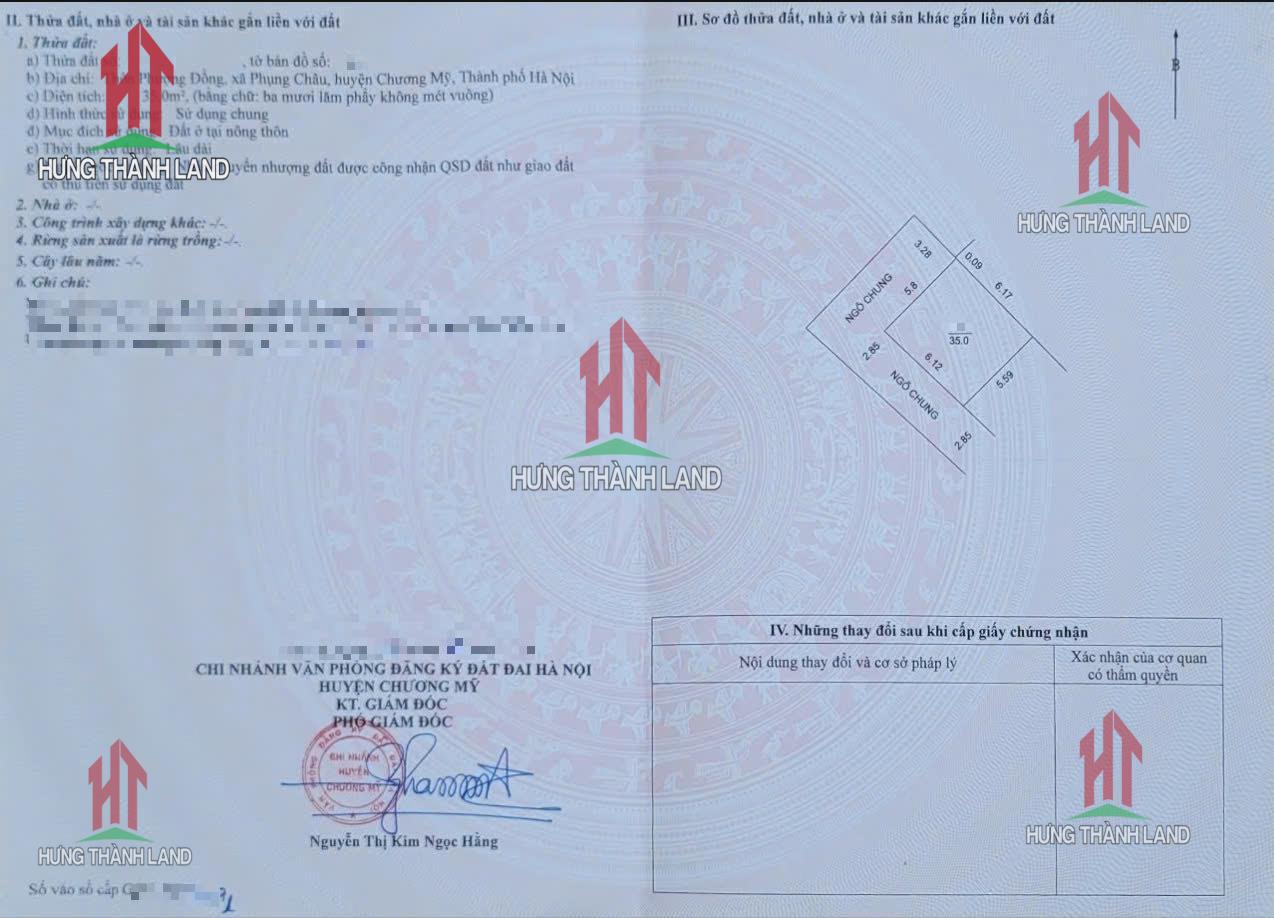 II. Thửa đất, nhà ở và tài sản khác gắn liền với đất
1. Thửa đất:
a) Thửa đất , tờ bản đồ số:
b) Địa chỉ: Đồng, xã Phụng Châu, huyện Chương Mỹ, Thành phố Hà Nội
c) Diện tích: 35,0m², (bằng chữ: ba mươi lăm phẩy không mét vuông)
d) Hình thức sử dụng: Sử dụng chung
đ) Mục đích sử dụng: Đất ở tại nông thôn
e) Thời hạn sử dụng: Lâu dài
nhượng đất được công nhận QSD đất như giao đất
có thu tiền sử dụng đất
2. Nhà ở: -/-.
3. Công trình xây dựng khác: -/-.
4. Rừng sản xuất là rừng trồng: -/-.
5. Cây lâu năm: -/-.
6. Ghi chú:
CHI NHÁNH VĂN PHÒNG ĐĂNG KÝ ĐẤT ĐAI HÀ NỘI
HUYỆN CHƯƠNG MỸ
KT. GIÁM ĐỐC
PHÓ GIÁM ĐỐC
CHI NHÁNH
HUYỆN
CHƯƠNG MỸ
Nguyễn Thị Kim Ngọc Hằng
Số vào sổ cấp
III. Sơ đồ thửa đất, nhà ở và tài sản khác gắn liền với đất
B
3.28
0.09
6.17
NGÕ CHUNG
5.8
35.0
2.85
6.12
5.59
NGÕ CHUNG
2.85
IV. Những thay đổi sau khi cấp giấy chứng nhận
Nội dung thay đổi và cơ sở pháp lý
Xác nhận của cơ quan
có thẩm quyền
HƯNG THÀNH LAND
HƯNG THÀNH LAND
HƯNG THÀNH LAND
HƯNG THÀNH LAND
HƯNG THÀNH LAND